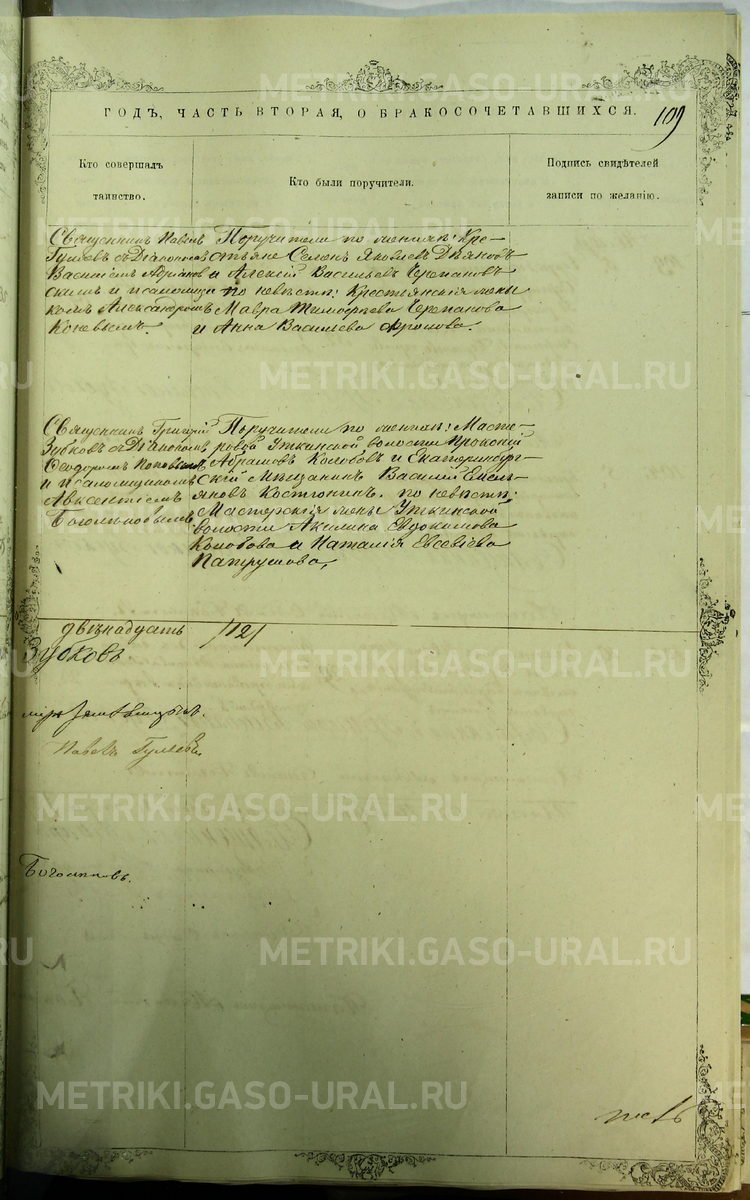 METRIKI.GASO-URAL.RU
ГОДЪ, ЧАСТЬ ВТОРАЯ, О БРАКОСОЧЕТАВШИХСЯ.
109
Кто совершалъ
таинство.
Кто были поручители.
Подпись свидѣтелей
записи по желанію.
Священникъ Павелъ
Гуляевъ съ Діакономъ
Василіемъ
скимъ и псаломщи-
комъ Александромъ
Коневымъ.
Поручители по женихѣ: Кре-
стьяне Семенъ Яковлевъ Дьяковъ
и Алексій Васильевъ Черепановъ
по невѣстѣ: Крестьянскія жены
Мавра Тимофеева Черепанова
и Анна Васильева Фролова.
Священникъ Григорій
Зубковъ съ Діакономъ
Феодоромъ Поповымъ
и псаломщикомъ
Авксентіемъ
Боголѣповымъ.
Поручители по женихѣ: Масте-
ровой Уткинской волости Прокопій
Абрамовъ Колобовъ и Екатеринбург-
скій Мѣщанинъ Василій Емель-
яновъ Костюнинъ. по невѣстѣ:
Мастерскія жены Уткинской
волости Акилина Евдокимова
Колобова и Наталія Евсевіева
Патрушова,
двѣнадцать
/12/
Зубковъ
Павелъ Гуляевъ.
METRIKI.GASO-URAL.RU